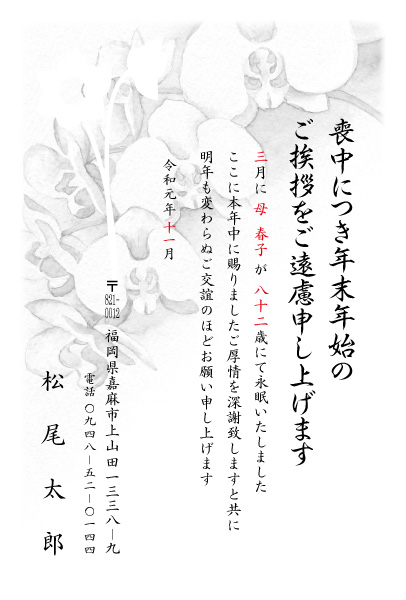 喪中につき年末年始の
ご挨拶をご遠慮申し上げます
三月に 母 春子 が 八十二歳にて永眠いたしました
ここに本年中に賜りましたご厚情を深謝致しますと共に
明年も変わらぬご交誼のほどお願い申し上げます
令和元年十一月
〒821-0012 福岡県嘉麻市上山田一三三八―九
電話 〇九四八―五二―〇一四四
松尾太郎